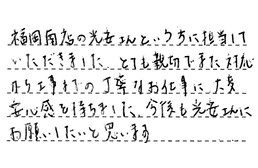 福岡南店の光安さんという方に担当して
いただきました。とても親切でまた対応
から工事までの丁寧なお仕事に大変
安心感を持ちました。今後も光安さんに
お願いしたいと思います